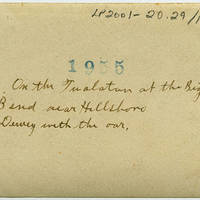 LP2001-20.29/1
1955
On the Tualatan at the Big
Bend near Hillsboro
Dewey with the oar.